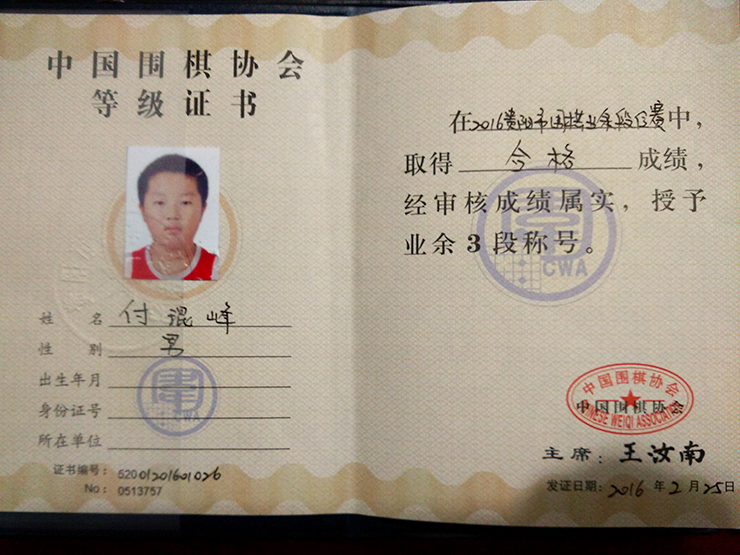 中国围棋协会
等级证书
姓名 付琨峰
性别 男
出生年月
身份证号
所在单位
证书编号：52001201601026
No：0513757
CWA
在2016贵阳市围棋业余段位赛中，
取得 合格 成绩，
经审核成绩属实，授予
业余3段称号。
CWA
中国围棋协会
CHINESE WEIQI ASSOCIATION
中国围棋协会
主席：王汝南
发证日期：2016年2月25日